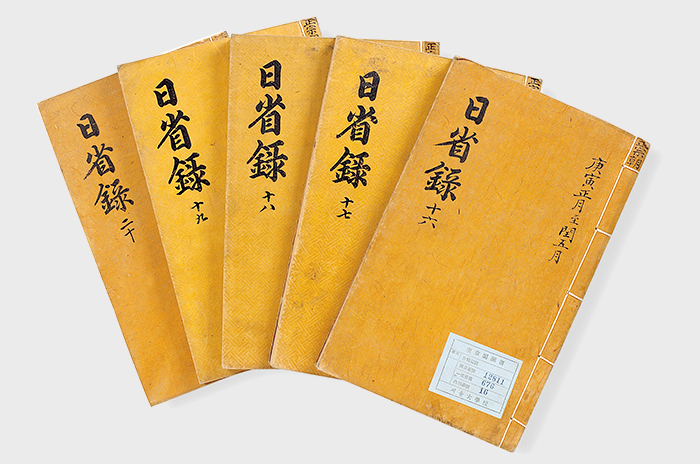 日省錄
二十
日省錄
十九
日省錄
十八
日省錄
十七
日省錄
十六
正宗朝
庚寅正月至閏五月
12811
676
16